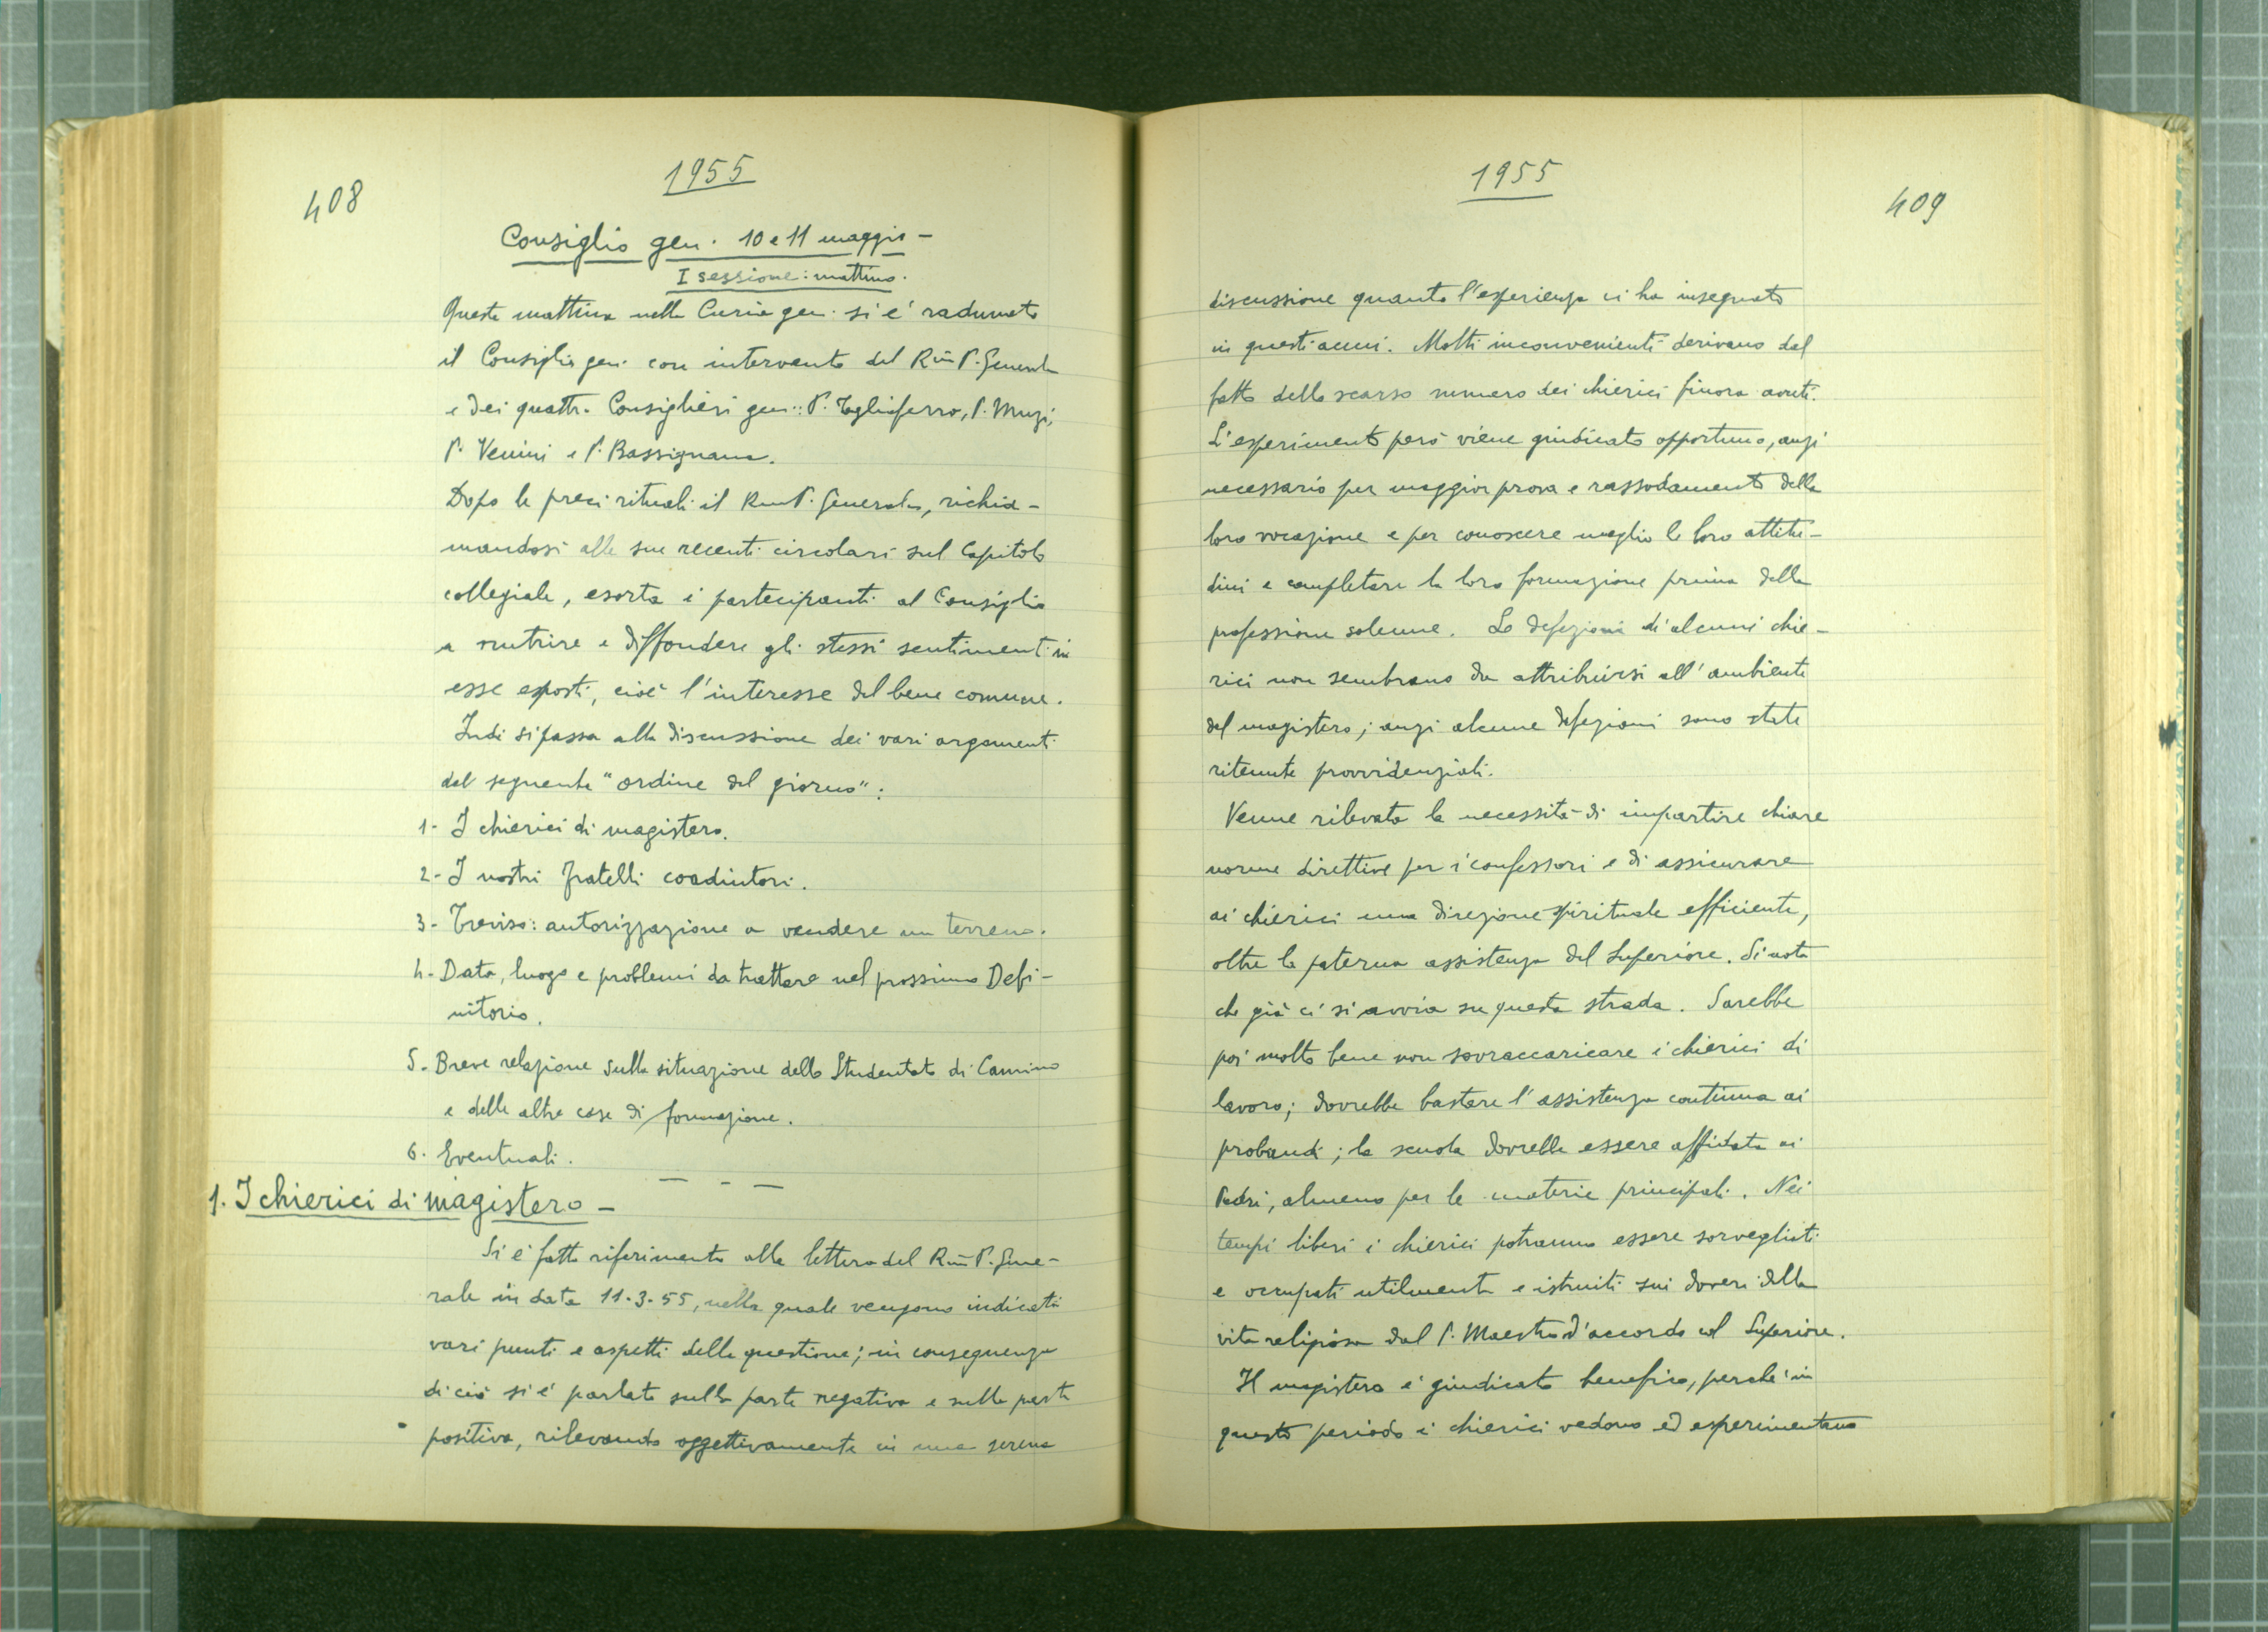 408
1955
Consiglio gen. 10 e 11 maggio -
I sessione: mattino.
Questa mattina nella Curia gen. si è radunato
il Consiglio gen. con intervento del Rm̄ P. Generale
e dei quattro Consiglieri gen.: P. Tagliaferro, P. Muzi,
P. Venini e P. Bassignana.
Dopo le preci rituali il Rm P. Generale, richia-
mandosi alle sue recenti circolari sul Capitolo
collegiale, esorta i partecipanti al Consiglio
a nutrire e diffondere gli stessi sentimenti in
esse esposti, cioè l'interesse del bene comune.
Indi si passa alla discussione dei vari argomenti
del seguente "ordine del giorno":
1- I chierici di magistero.
2- I nostri fratelli coadiutori.
3- Treviso: autorizzazione a vendere un terreno.
4- Data, luogo e problemi da trattare nel prossimo Defi-
nitorio.
5. Breve relazione sulla situazione dello Studentato di Camino
e delle altre case di formazione.
6. Eventuali.
— - —
1. I chierici di magistero -
Si è fatto riferimento alla lettera del Rm̄ P. Gene-
rale in data 11-3-55, nella quale vengono indicati
vari punti e aspetti della questione; in conseguenza
di ciò si è parlato sulla parte negativa e sulla parte
positiva, rilevando oggettivamente in una serena
1955
409
discussione quanto l'esperienza ci ha insegnato
in questi anni. Molti inconvenienti derivano dal
fatto dello scarso numero dei chierici finora avuti.
L'esperimento però viene giudicato opportuno, anzi
necessario per maggior prova e rassodamento della
loro vocazione e per conoscere meglio le loro attitu-
dini e completare la loro formazione prima della
professione solenne. Le defezioni di alcuni chie-
rici non sembrano da attribuirsi all'ambiente
del magistero; anzi alcune defezioni sono state
ritenute provvidenziali.
Venne rilevata la necessità di impartire chiare
norme direttive per i confessori e di assicurare
ai chierici una direzione spirituale efficiente,
oltre la paterna assistenza del Superiore. Si nota
che già ci si avvia su questa strada. Sarebbe
poi molto bene non sovraccaricare i chierici di
lavoro; dovrebbe bastare l'assistenza continua ai
probandi; la scuola dovrebbe essere affidata ai
Padri, almeno per le materie principali. Nei
tempi liberi i chierici potranno essere sorvegliati
e occupati utilmente e istruiti sui doveri della
vita religiosa dal P. Maestro d'accordo col Superiore.
Il magistero è giudicato benefico, perchè in
questo periodo i chierici vedono ed esperimentano